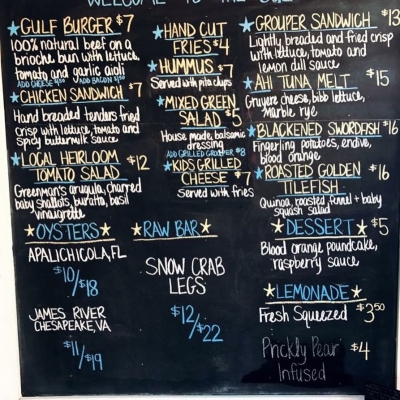 WELCOME TO THE
GULF BURGER $7
100% natural beef on a
brioche bun with lettuce,
tomato and garlic aioli
ADD CHEESE ADD BACON
CHICKEN SANDWICH $7
Hand breaded tenders fried
crisp with lettuce, tomato and
spicy buttermilk sauce
LOCAL HEIRLOOM $12
TOMATO SALAD
Greenman's arugula, charred
baby shallots, burrata, basil
vinaigrette
OYSTERS
APALICHICOLA, FL
$10/$18
JAMES RIVER
CHESAPEAKE, VA
$11/$19
HAND CUT
FRIES $4
HUMMUS $7
Served with pita chips
MIXED GREEN
SALAD $5
House made, balsamic
dressing
ADD GRILLED GROUPER $8
KIDS GRILLED
CHEESE $7
Served with fries
RAW BAR
SNOW CRAB
LEGS
$12/$22
GROUPER SANDWICH $13
Lightly breaded and fried crisp
with lettuce, tomato and
lemon dill sauce
AHI TUNA MELT $15
Gruyere cheese, bibb lettuce,
marble rye
BLACKENED SWORDFISH $16
Fingerling potatoes, endive,
blood orange
ROASTED GOLDEN $16
TILEFISH
Quinoa, roasted fennel + baby
squash salad
DESSERT $5
Blood orange poundcake,
raspberry sauce
LEMONADE
Fresh Squeezed $3.50
Prickly Pear $4
Infused